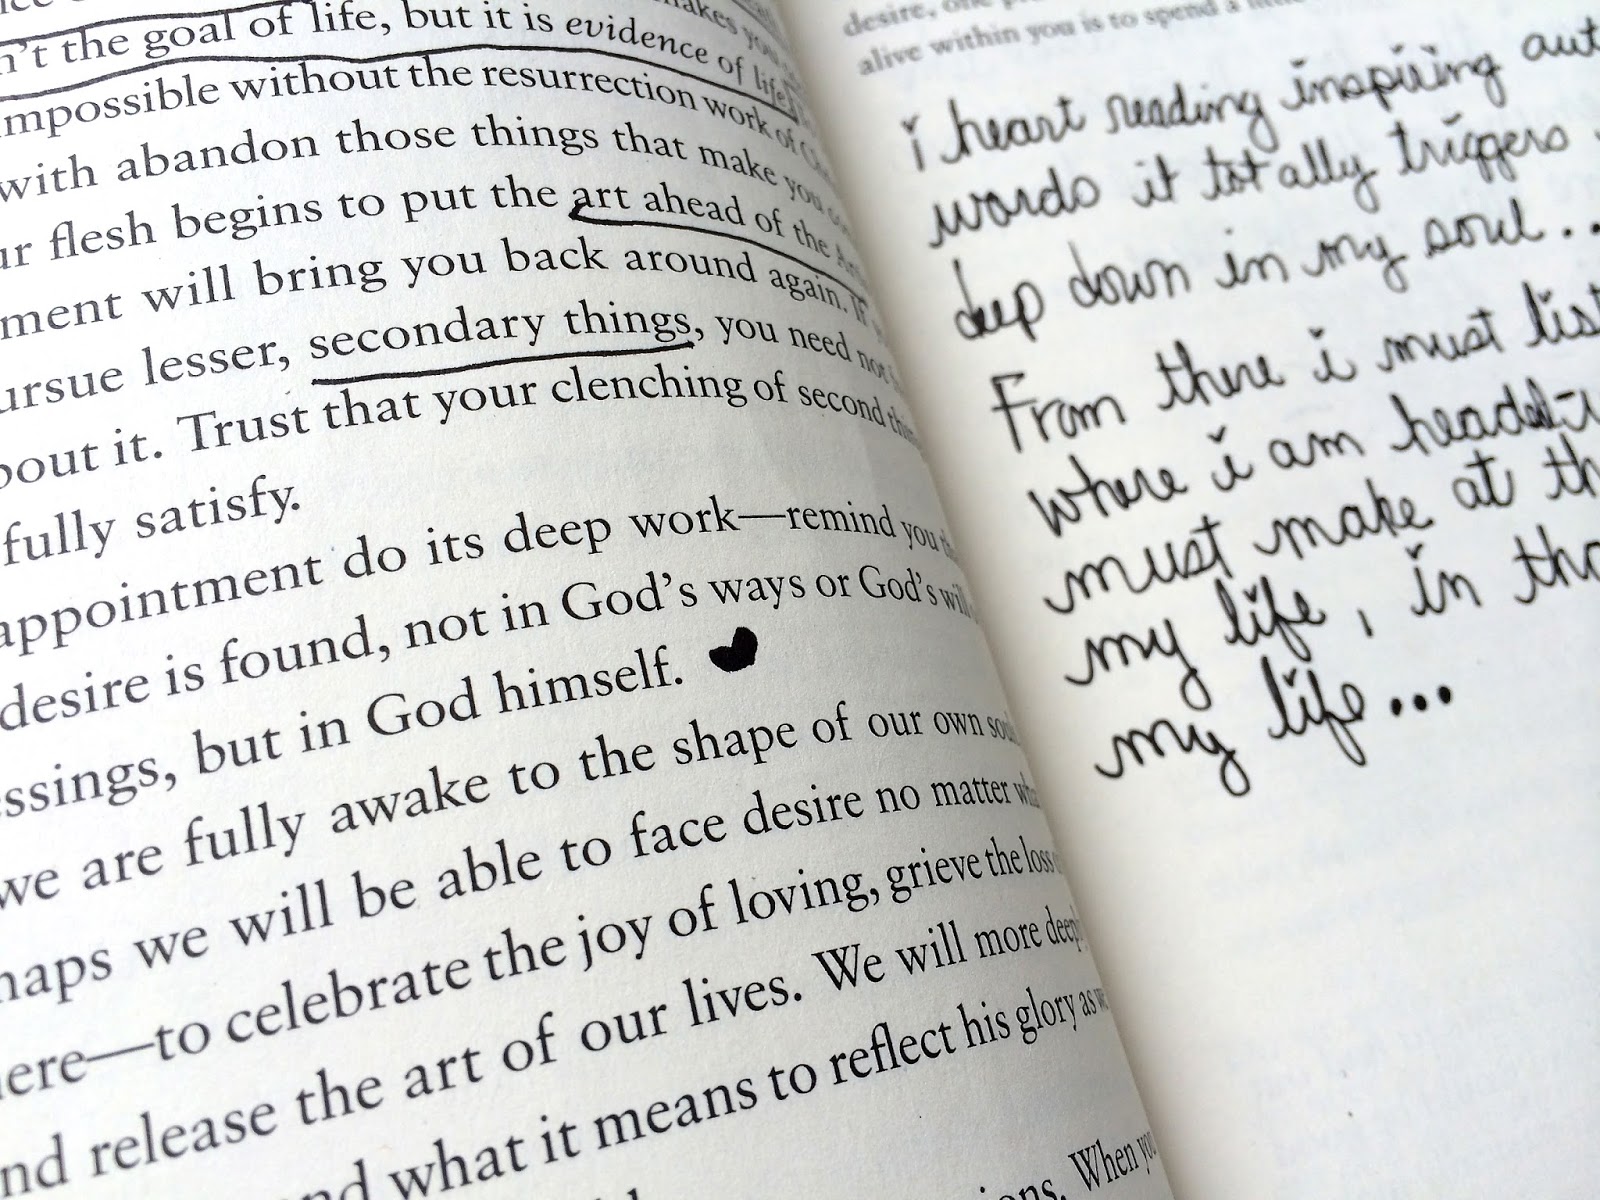 n't the goal of life, but it is evidence of life
impossible without the resurrection work of
with abandon those things that make you
ur flesh begins to put the art ahead of the
ment will bring you back around again. If
ursue lesser, secondary things, you need not
bout it. Trust that your clenching of second
fully satisfy.
appointment do its deep work—remind you
desire is found, not in God's ways or God's will
essings, but in God himself.
we are fully awake to the shape of our own
haps we will be able to face desire no matter
ere—to celebrate the joy of loving, grieve the loss
nd release the art of our lives. We will more
nd what it means to reflect his glory as
ons. When you
desire,
alive within you is to spend a
i heart reading inspiring
words it totally triggers
deep down in my soul...
From there i must
where i am
must make at
my life, in
my life...